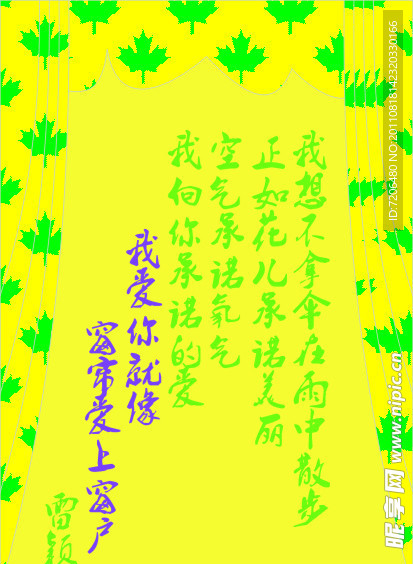 我想不拿伞在雨中散步
正如花儿承诺美丽
空气承诺氧气
我向你承诺的爱
我爱你就像
窗帘爱上窗户
雷颖
昵享网 www.nipic.cn
ID:7206480 NO:20110818142320330166